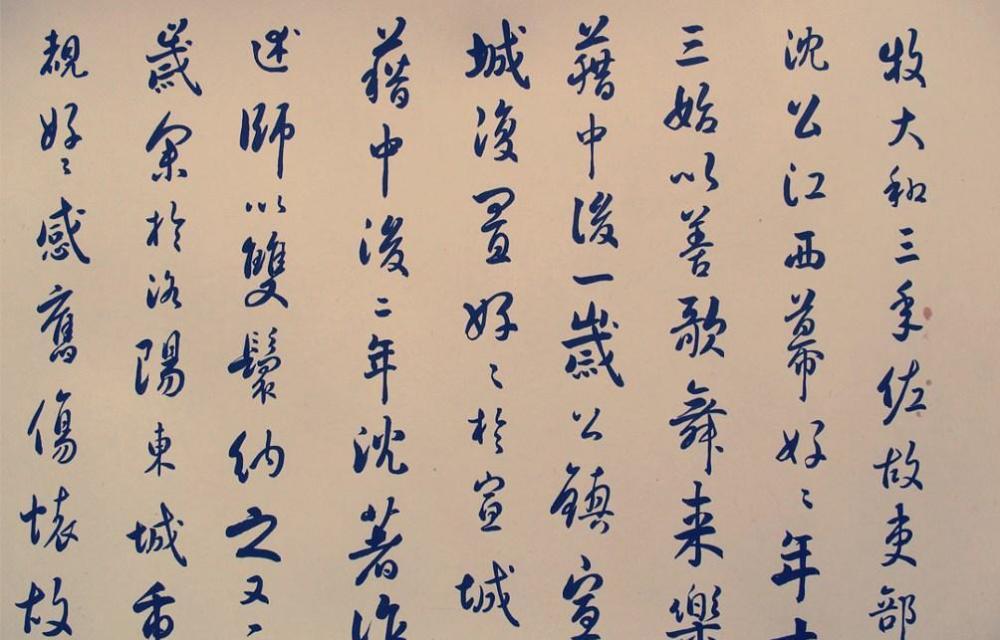 牧大和三年佐故吏部
沈公江西幕好〻年十
三始以善歌舞来樂
藉中後一歲公鎮宣
城復置好〻於宣城
藉中後二年沈著作
述師以雙鬟納之又
歲余於洛陽東城重
覩好〻感舊傷懷故